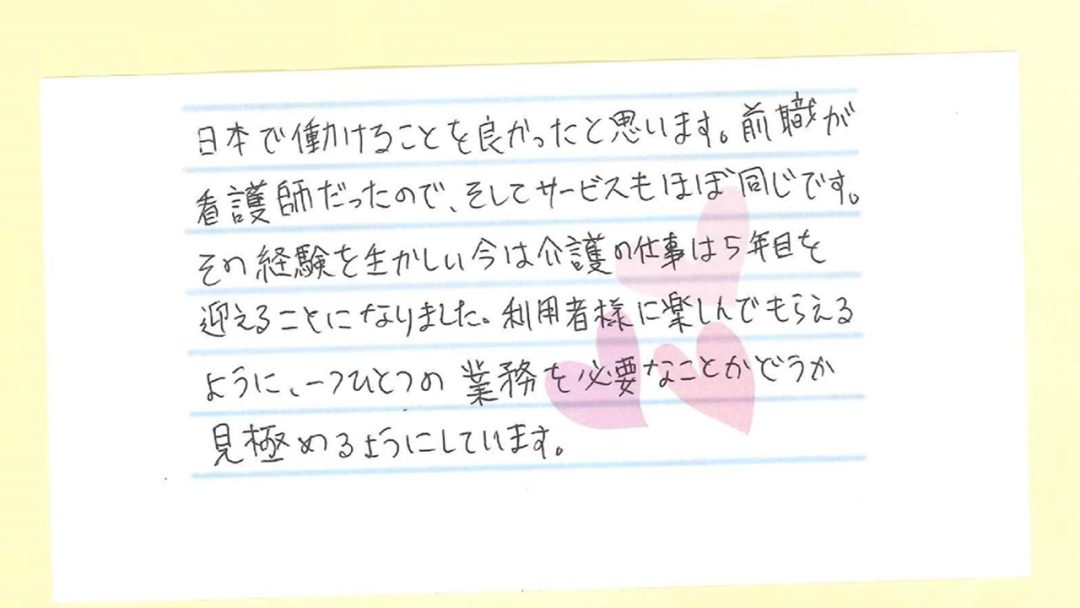 日本で働けることを良かったと思います。前職が
看護師だったので、そしてサービスもほぼ同じです。
その経験を生かしい今は介護の仕事は5年目を
迎えることになりました。利用者様に楽しんでもらえる
ように、一つひとつの業務を必要なことかどうか
見極めるようにしています。